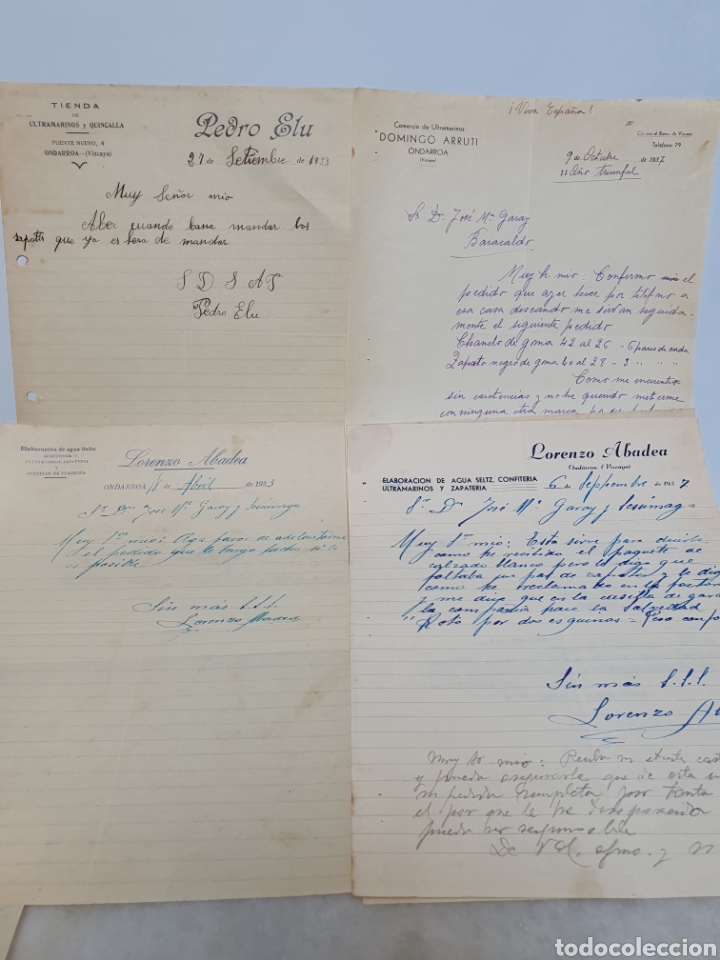 TIENDA
DE
ULTRAMARINOS y QUINCALLA
PUENTE NUEVO, 4
ONDARROA—(Vizcaya)
Pedro Elu
27 de Setiembre de 1933
Muy Señor mio
Aber cuando bana mandar las
zapatos que ya es hora de mandar
S D S A T
Pedro Elu
¡Viva España!
Comercio de Ultramarinos
DOMINGO ARRUTI
ONDARROA
(Vizcaya)
C/c con el Banco de Vizcaya
Teléfono 79
9 de Octubre de 1937
II Año Triunfal
Sr. D. José Mª Garay
Baracaldo
Muy Sr mio: Confirmo
el poedido que ayer hice por telefono a
esa casa deseando me sirvan seguida-
mente el siguiente pedido
Chanclo de goma 42 al 26 - 6 pares de cada
Zapato negro de goma 40 al 28 - 3 " " "
Como me encuentro
sin existencias y no he querido meterme
con ninguna otra marca
Elaboración de agua Seltz
ULTRAMARINOS, ZAPATERIA
Lorenzo Abadea
ONDARROA de Abril de 1933
Sr. Dn José Mª Garay y Sesúmaga
Muy Sr mio: Aga favor de
el pedido que le tengo si es
posible
Sin más S.S.S.
Lorenzo Abadea
Lorenzo Abadea
Ondárroa (Vizcaya)
ELABORACION DE AGUA SELTZ, CONFITERIA
ULTRAMARINOS Y ZAPATERIA
6 de Septiembre de 1937
Sr. D. José Mª Garay y Sesúmaga
Muy Sr mio: Esta sirve para decirle
como he recibido el paquete de
calzado blanco pero le digo que
faltaba un par de zapatos y le digo
como he reclamado en la
y me dice que en la
la compañia
Roto por dos esquinas
Sin más S.S.S.
Lorenzo
Muy Sr. mio:
y puedo asegurarle que de esta
mi pedido completa por tanto
el por que le ha desaparecido
puedo ser responsable
De Vd. afmo. y
todocoleccion